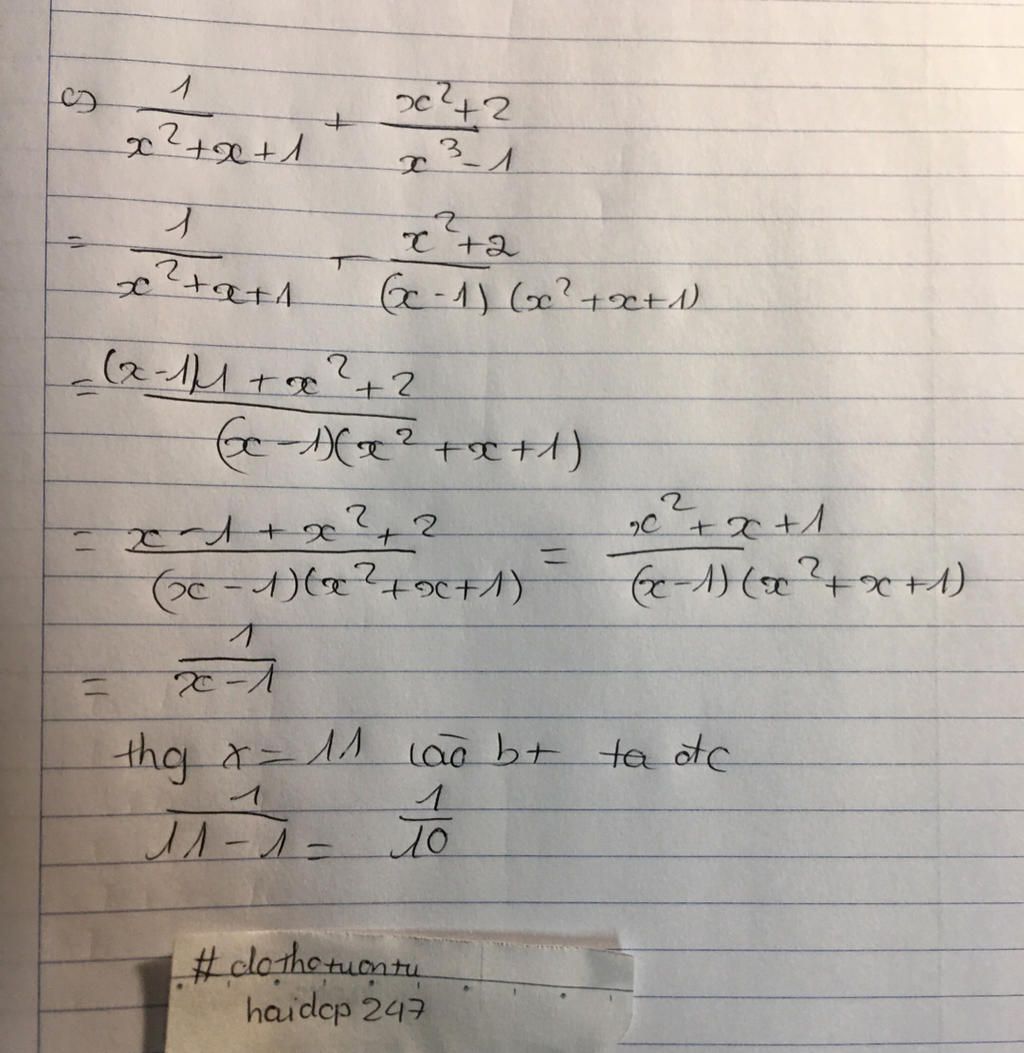 c) 1/(x²+x+1) + (x²+2)/(x³-1)
= 1/(x²+x+1) + (x²+2)/((x-1)(x²+x+1))
= ((x-1)1 + x²+2)/((x-1)(x²+x+1))
= (x-1+x²+2)/((x-1)(x²+x+1)) = (x²+x+1)/((x-1)(x²+x+1))
= 1/(x-1)
thg x=11 bt ta đc
1/(11-1) = 1/10
haidcp 247